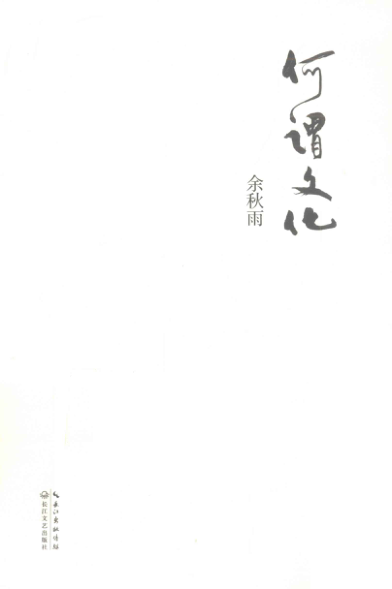 何谓文化
余秋雨
长江出版传媒
长江文艺出版社